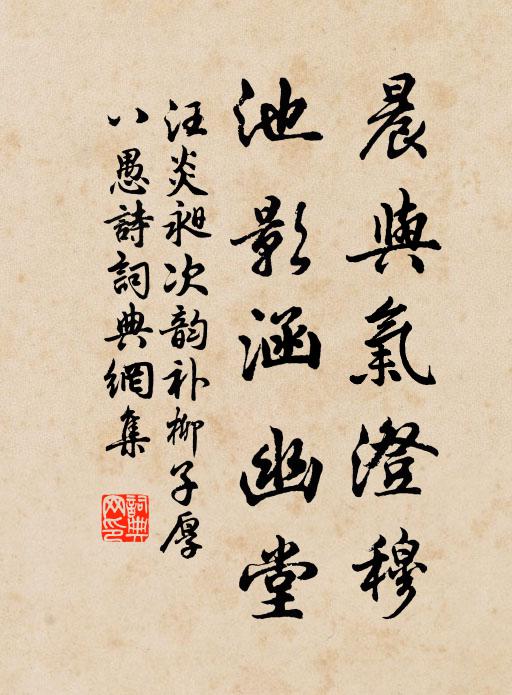 晨興氣澄穆
池影涵幽堂
汪炎昶次韵补柳子厚
八愚詩詞典網集
詞典
网印